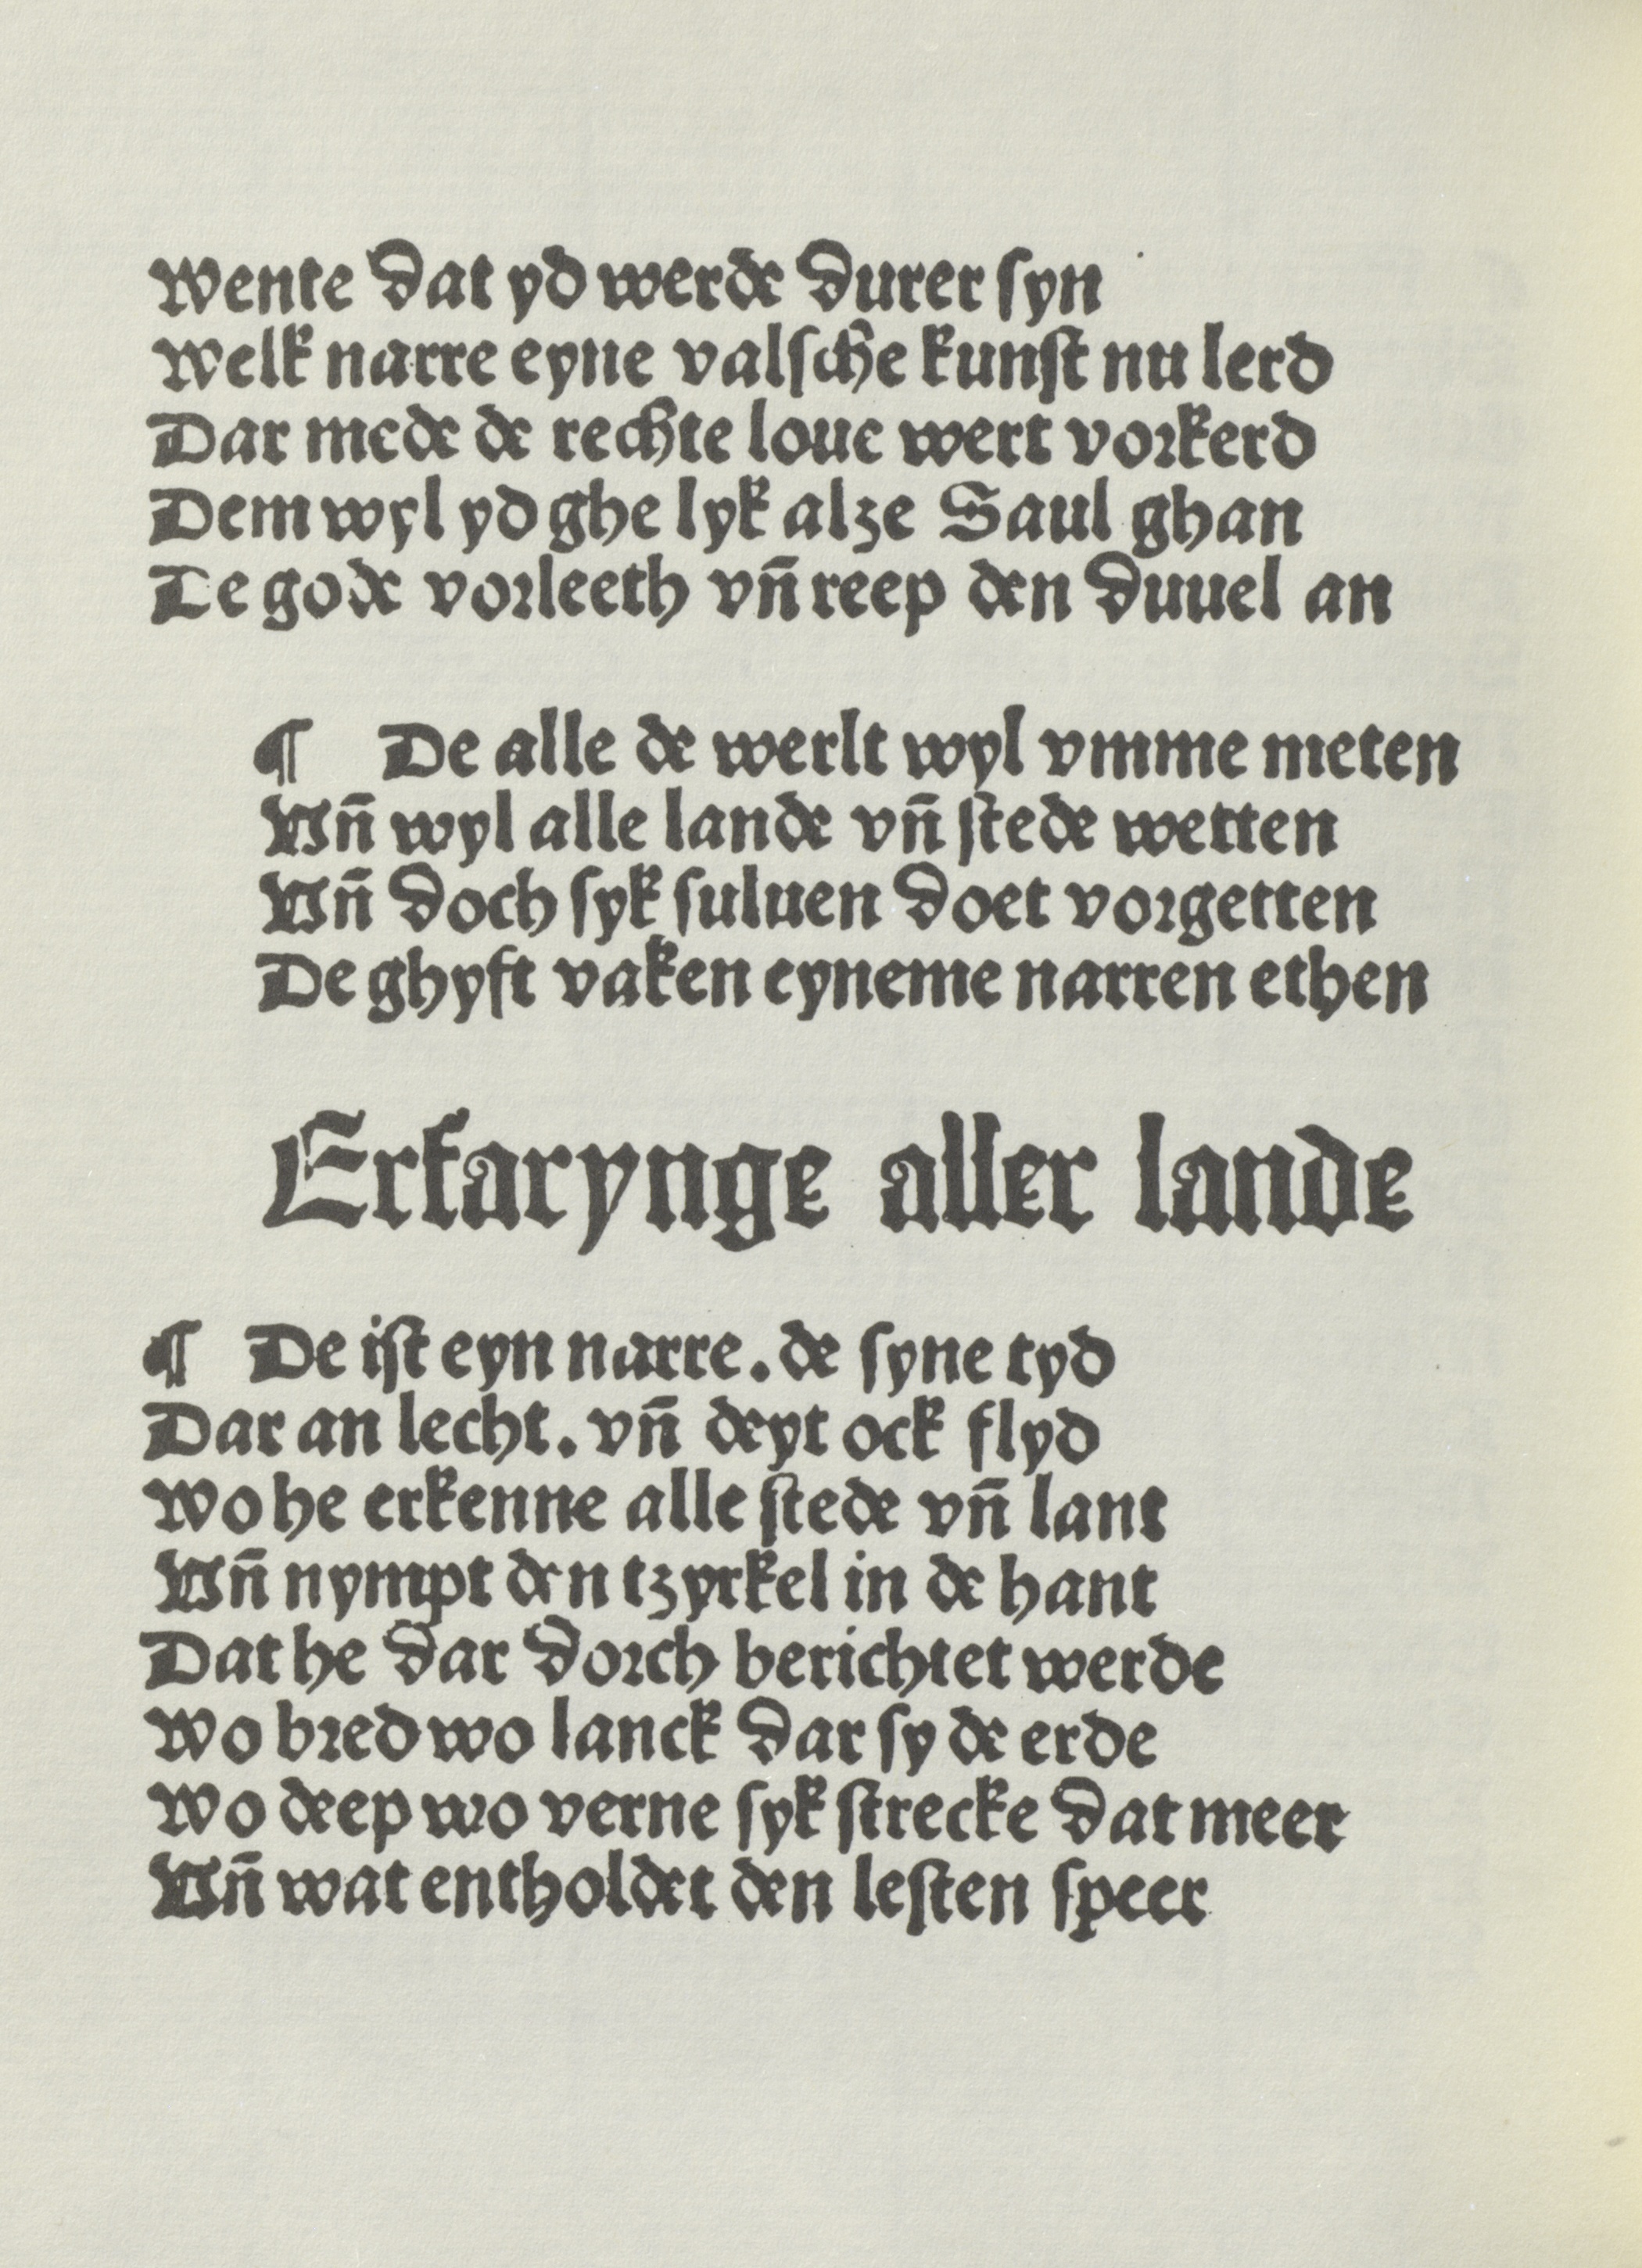 Wente dat yd werde durer syn
Welk narre eyne valſche kunſt nu lerd
Dar mede de rechte loue wert vorkerd
Dem wyl yd ghe lyk alze Saul ghan
De gode vorleeth vñ reep den duuel an
¶ De alle de werlt wyl vmme meten
Vñ wyl alle lande vñ ſtede wetten
Vñ doch ſyk ſuluen doet vorgetten
De ghyft vaken eyneme narren ethen
Erfarynge aller lande
¶ De iſt eyn narre. de ſyne tyd
Dar an lecht. vñ deyt ock flyd
Wo he erkenne alle ſtede vñ lant
Vñ nympt den tzyrkel in de hant
Dat he dar dorch berichtet werde
Wo bred wo lanck dar ſy de erde
Wo deep wo verne ſyk ſtrecke dat meer
Vñ wat entholdet den leſten ſpeer